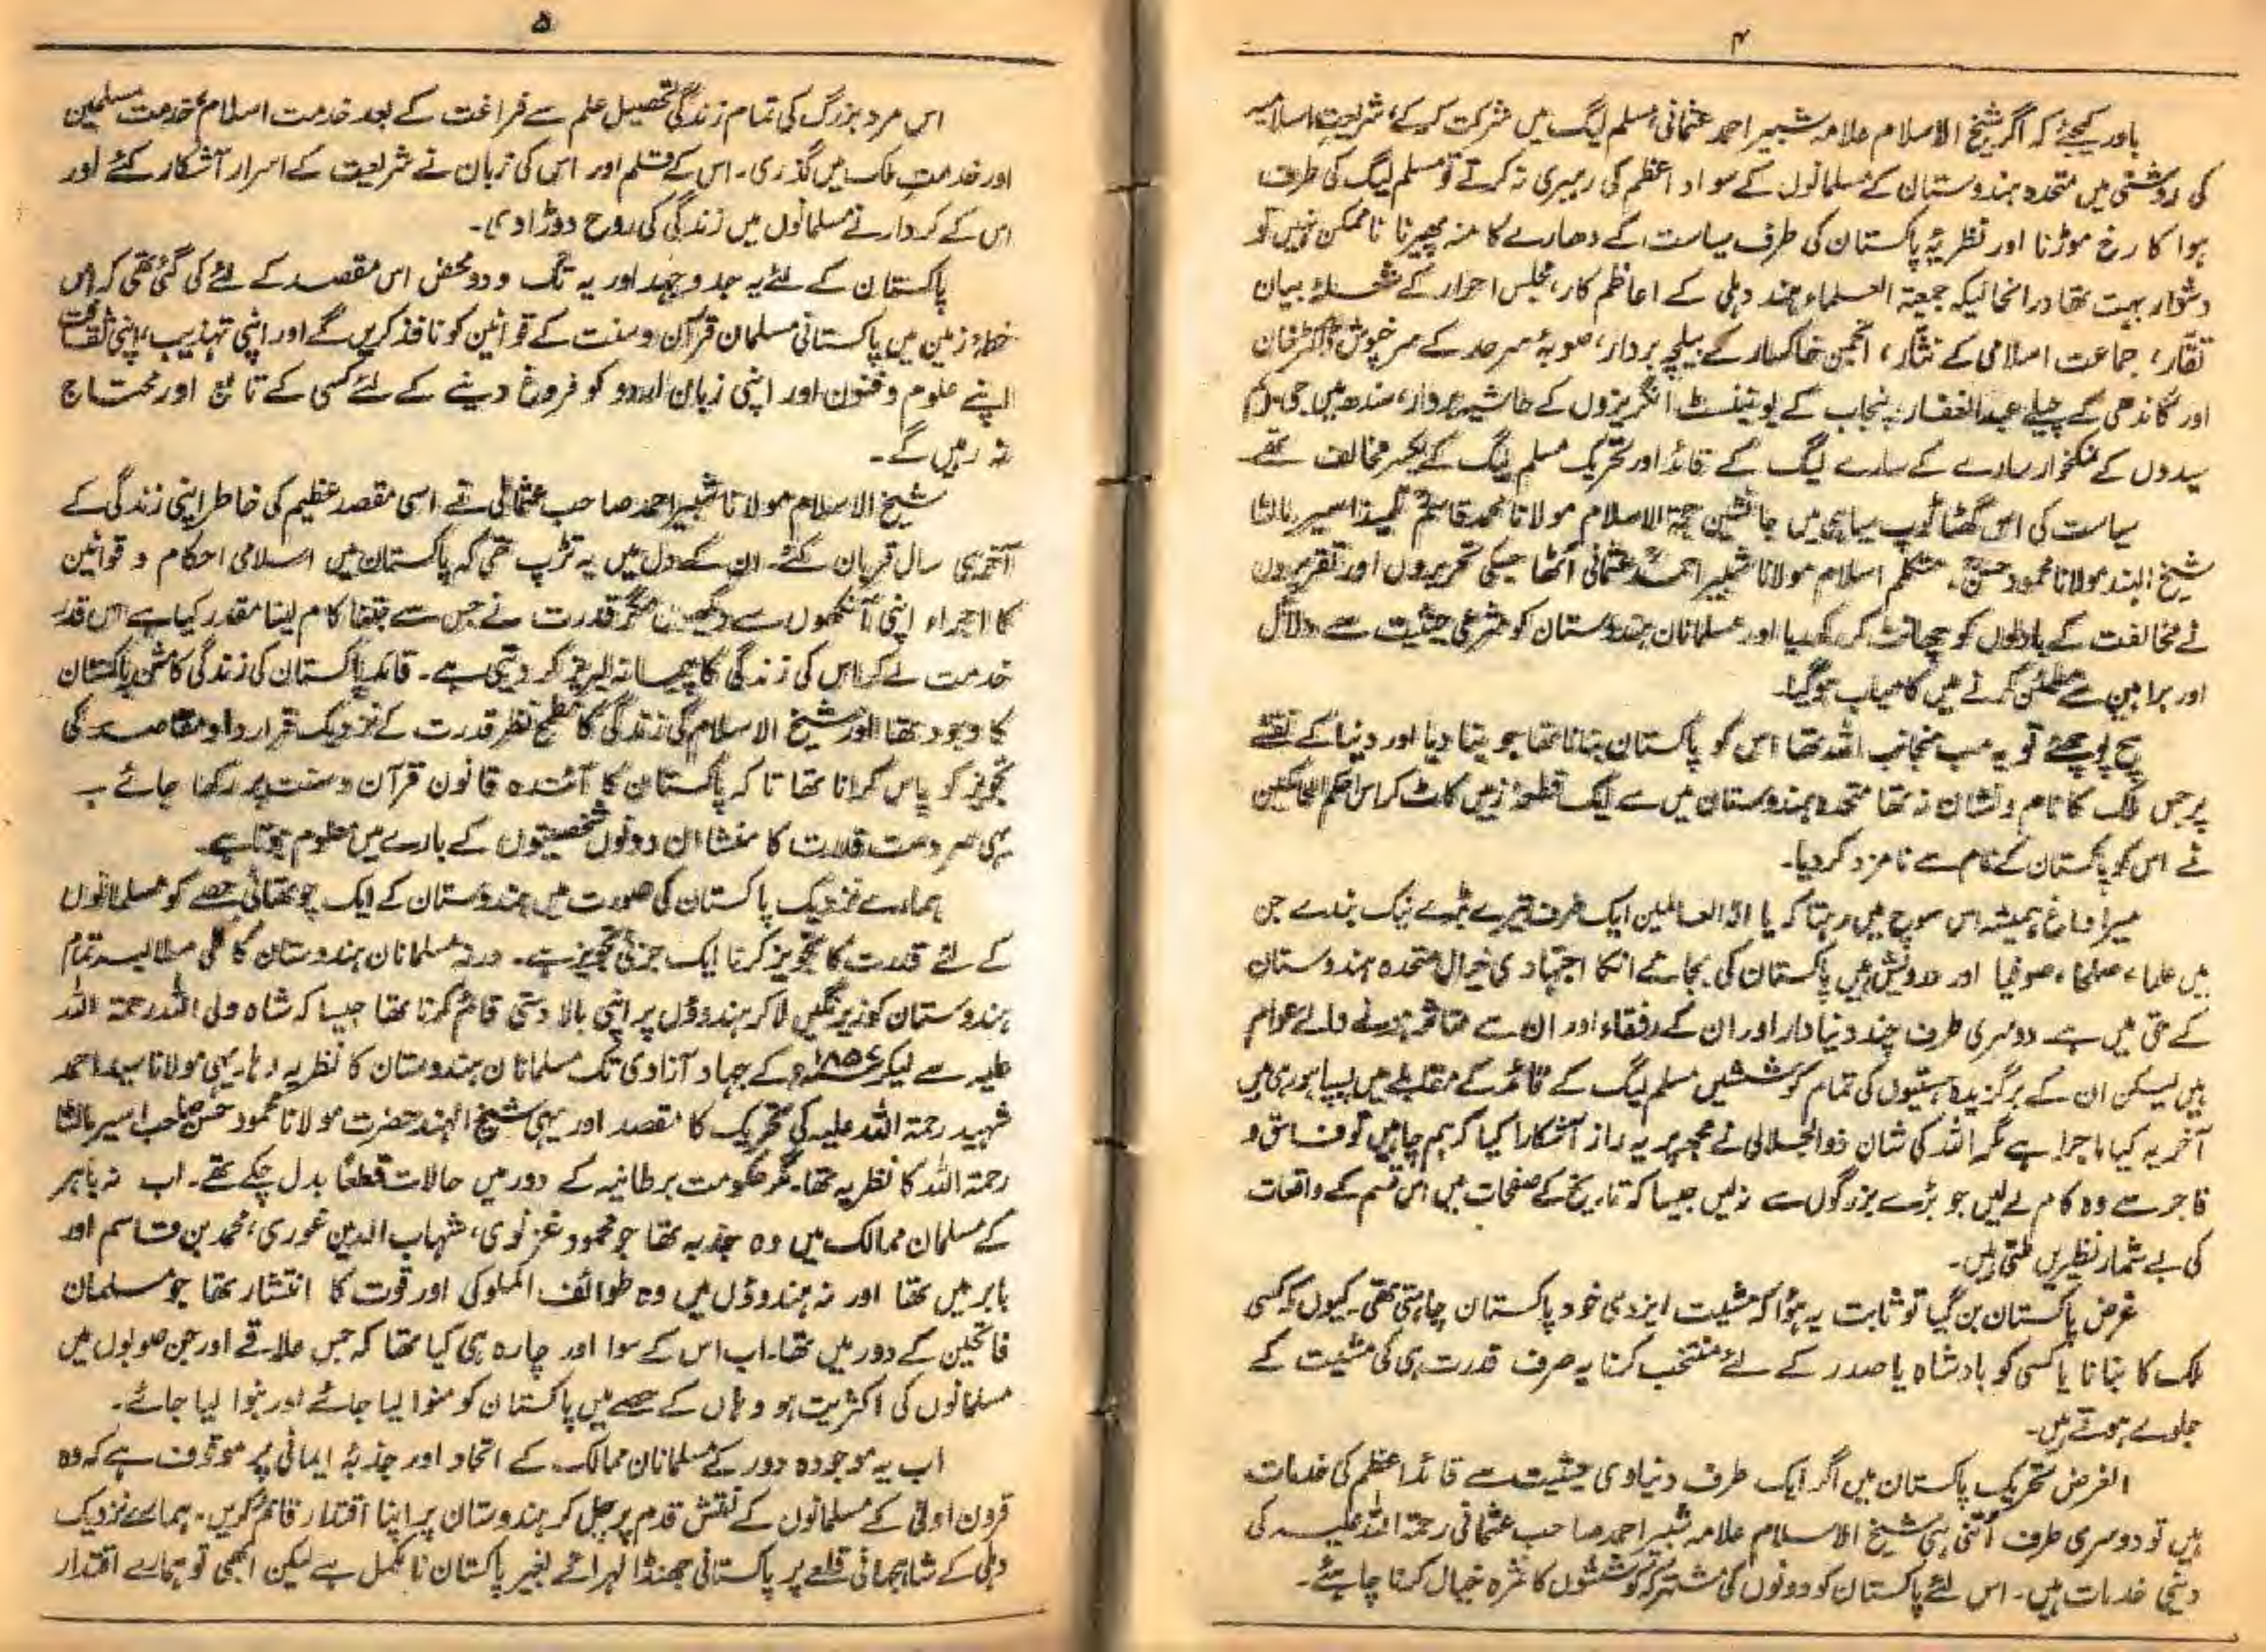 ۴
باور کیجئے کہ اگر شیخ الاسلام علامہ شبیر احمد عثمانی مسلم لیگ میں شرکت کرکے شریعتِ اسلامیہ
کی روشنی میں متحدہ ہندوستان کے مسلمانوں کے سواد اعظم کی رہبری نہ کرتے تو مسلم لیگ کی طرف
ہوا کا رخ موڑنا اور نظریۂ پاکستان کی طرف سیاست کے دھارے کا منہ پھیرنا ناممکن نہیں تو
دشوار بہت تھا درانحالیکہ جمعیۃ العلماء ہند دہلی کے اعاظم کار، مجلس احرار کے شعلۂ بیان
تقار، جماعت اسلامی کے نثار، انجمن خاکسار کے بیلچہ بردار، صوبۂ سرحد کے سرخپوش ڈاکٹر خان
اور گاندھی کے چیلے عبدالغفار، پنجاب کے یونینسٹ انگریزوں کے حاشیہ بردار، سندھ میں جی ایم
سیدوں کے نمکخوار سارے کے سارے لیگ کے قائد اور تحریک مسلم لیگ کے یکسر مخالف تھے
سیاست کی اس گھٹا ٹوپ سیاہی میں جانشین حجۃ الاسلام مولانا محمد قاسم تلمیذ اسیر مالٹا
شیخ الہند مولانا محمود حسن، متکلم اسلام مولانا شبیر احمد عثمانی اٹھا جسکی تحریروں اور تقریروں
نے مخالفت کے بادلوں کو چھانٹ کر رکھدیا اور مسلمانان ہندوستان کو شرعی حیثیت سے دلائل
اور براہین سے مطمئن کرنے میں کامیاب ہوگیا۔
سچ پوچھئے تو یہ سب منجانب اللہ تھا اس کو پاکستان بنانا تھا جو بنا دیا اور دنیا کے نقشے
پر جس ملک کا نام و نشان نہ تھا متحدہ ہندوستان میں سے ایک قطعۂ زمین کاٹ کر اس احکم الحاکمین
نے اس کو پاکستان کے نام سے نامزد کر دیا۔
میرا دماغ ہمیشہ اس سوچ میں رہتا کہ یا الہ العالمین ایک طرف تیرے بڑے نیک بندے جن
میں علماء، صلحا، صوفیا اور درویش ہیں پاکستان کی بجائے انکا اجتہادی خیال متحدہ ہندوستان
کے حق میں ہے دوسری طرف چند دنیا دار اور ان کے رفقاء اور ان سے متاثر ہونے والے عوام
ہیں لیکن ان کے برگزیدہ ہستیوں کی تمام کوششیں مسلم لیگ کے قائد کے مقابلے میں پسپا ہو رہی ہیں
آخر یہ کیا ماجرا ہے مگر اللہ کی شان ذوالجلالی نے مجھ پر یہ راز آشکارا کیا کہ ہم چاہیں تو فساق و
فاجر سے وہ کام لے لیں جو بڑے بزرگوں سے نہ لیں جیسا کہ تاریخ کے صفحات میں اس قسم کے واقعات
کی بے شمار نظیریں ملتی ہیں۔
غرض پاکستان بن گیا تو ثابت یہ ہوا کہ مشیت ایزدی خود پاکستان چاہتی تھی۔ کیوں کہ کسی
ملک کا بنانا یا کسی کو بادشاہ یا صدر کے لئے منتخب کرنا یہ صرف قدرت ہی کی مشیت کے
جلوے ہوتے ہیں۔
الغرض تحریک پاکستان میں اگر ایک طرف دنیاوی حیثیت سے قائد اعظم کی خدمات
ہیں تو دوسری طرف اتنی ہی شیخ الاسلام علامہ شبیر احمد صاحب عثمانی رحمۃ اللہ علیہ کی
دینی خدمات ہیں۔ اس لئے پاکستان کو دونوں کی مشترکہ کوششوں کا ثمرہ خیال کرنا چاہئے۔
۵
اس مرد بزرگ کی تمام زندگی تحصیل علم سے فراغت کے بعد خدمت اسلام، خدمت مسلمین
اور خدمتِ ملک میں گذری۔ اس کے قلم اور اس کی زبان نے شریعت کے اسرار آشکار کئے اور
اس کے کردار نے مسلمانوں میں زندگی کی روح دوڑا دی۔
پاکستان کے لئے یہ جدوجہد اور یہ تگ و دو محض اس مقصد کے لئے کی گئی تھی کہ اس
خطۂ زمین میں پاکستانی مسلمان قرآن و سنت کے قوانین کو نافذ کریں گے اور اپنی تہذیب، اپنی ثقافت
اپنے علوم و فنون اور اپنی زبان اردو کو فروغ دینے کے لئے کسی کے تابع اور محتاج
نہ رہیں گے۔
شیخ الاسلام مولانا شبیر احمد صاحب عثمانی نے اسی مقصد عظیم کی خاطر اپنی زندگی کے
آخری سال قربان کئے۔ ان کے دل میں یہ تڑپ تھی کہ پاکستان میں اسلامی احکام و قوانین
کا اجراء اپنی آنکھوں سے دیکھیں مگر قدرت نے جس سے جتنا کام لینا مقدر کیا ہے اس قدر
خدمت لے کر اس کی زندگی کا پیمانہ لبریز کر دیتی ہے۔ قائد پاکستان کی زندگی کا مشن پاکستان
کا وجود تھا اور شیخ الاسلام کی زندگی کا مطمح نظر قدرت کے نزدیک قرار داد مقاصد کی
تجویز کو پاس کرانا تھا تا کہ پاکستان کا آئندہ قانون قرآن و سنت پر رکھا جائے۔
یہی سردست قدرت کا منشا ان دونوں شخصیتوں کے بارے میں معلوم ہوتا ہے۔
ہمارے نزدیک پاکستان کی صورت میں ہندوستان کے ایک چوتھائی حصے کو مسلمانوں
کے لئے قدرت کا تجویز کرنا ایک جزئی تجویز ہے۔ ورنہ مسلمانان ہندوستان کا کلی مطالبہ تمام
ہندوستان کو زیر نگیں لا کر ہندوؤں پر اپنی بالا دستی قائم کرنا تھا جیسا کہ شاہ ولی اللہ رحمۃ اللہ
علیہ سے لیکر ۱۸۵۷ء کے جہاد آزادی تک مسلمانان ہندوستان کا نظریہ رہا۔ یہی مولانا سید احمد
شہید رحمۃ اللہ علیہ کی تحریک کا مقصد اور یہی شیخ الہند حضرت مولانا محمود حسن صاحب اسیر مالٹا
رحمۃ اللہ کا نظریہ تھا۔ مگر حکومت برطانیہ کے دور میں حالات قطعاً بدل چکے تھے۔ اب نہ باہر
کے مسلمان ممالک میں وہ جذبہ تھا جو محمود غزنوی، شہاب الدین غوری، محمد بن قاسم اور
بابر میں تھا اور نہ ہندوؤں میں وہ طوائف الملوکی اور قوت کا انتشار تھا جو مسلمان
فاتحین کے دور میں تھا۔ اب اس کے سوا اور چارہ ہی کیا تھا کہ جس علاقے اور جن صوبوں میں
مسلمانوں کی اکثریت ہو وہاں کے حصے میں پاکستان کو منوا لیا جائے اور بنوا لیا جائے۔
اب یہ موجودہ دور کے مسلمانان ممالک کے اتحاد اور جذبۂ ایمانی پر موقوف ہے کہ وہ
قرون اولیٰ کے مسلمانوں کے نقش قدم پر چل کر ہندوستان پر اپنا اقتدار قائم کریں۔ ہمارے نزدیک
دہلی کے شاہجہانی قلعے پر پاکستانی جھنڈا لہرائے بغیر پاکستان نا مکمل ہے لیکن ابھی تو ہمارے اقتدار